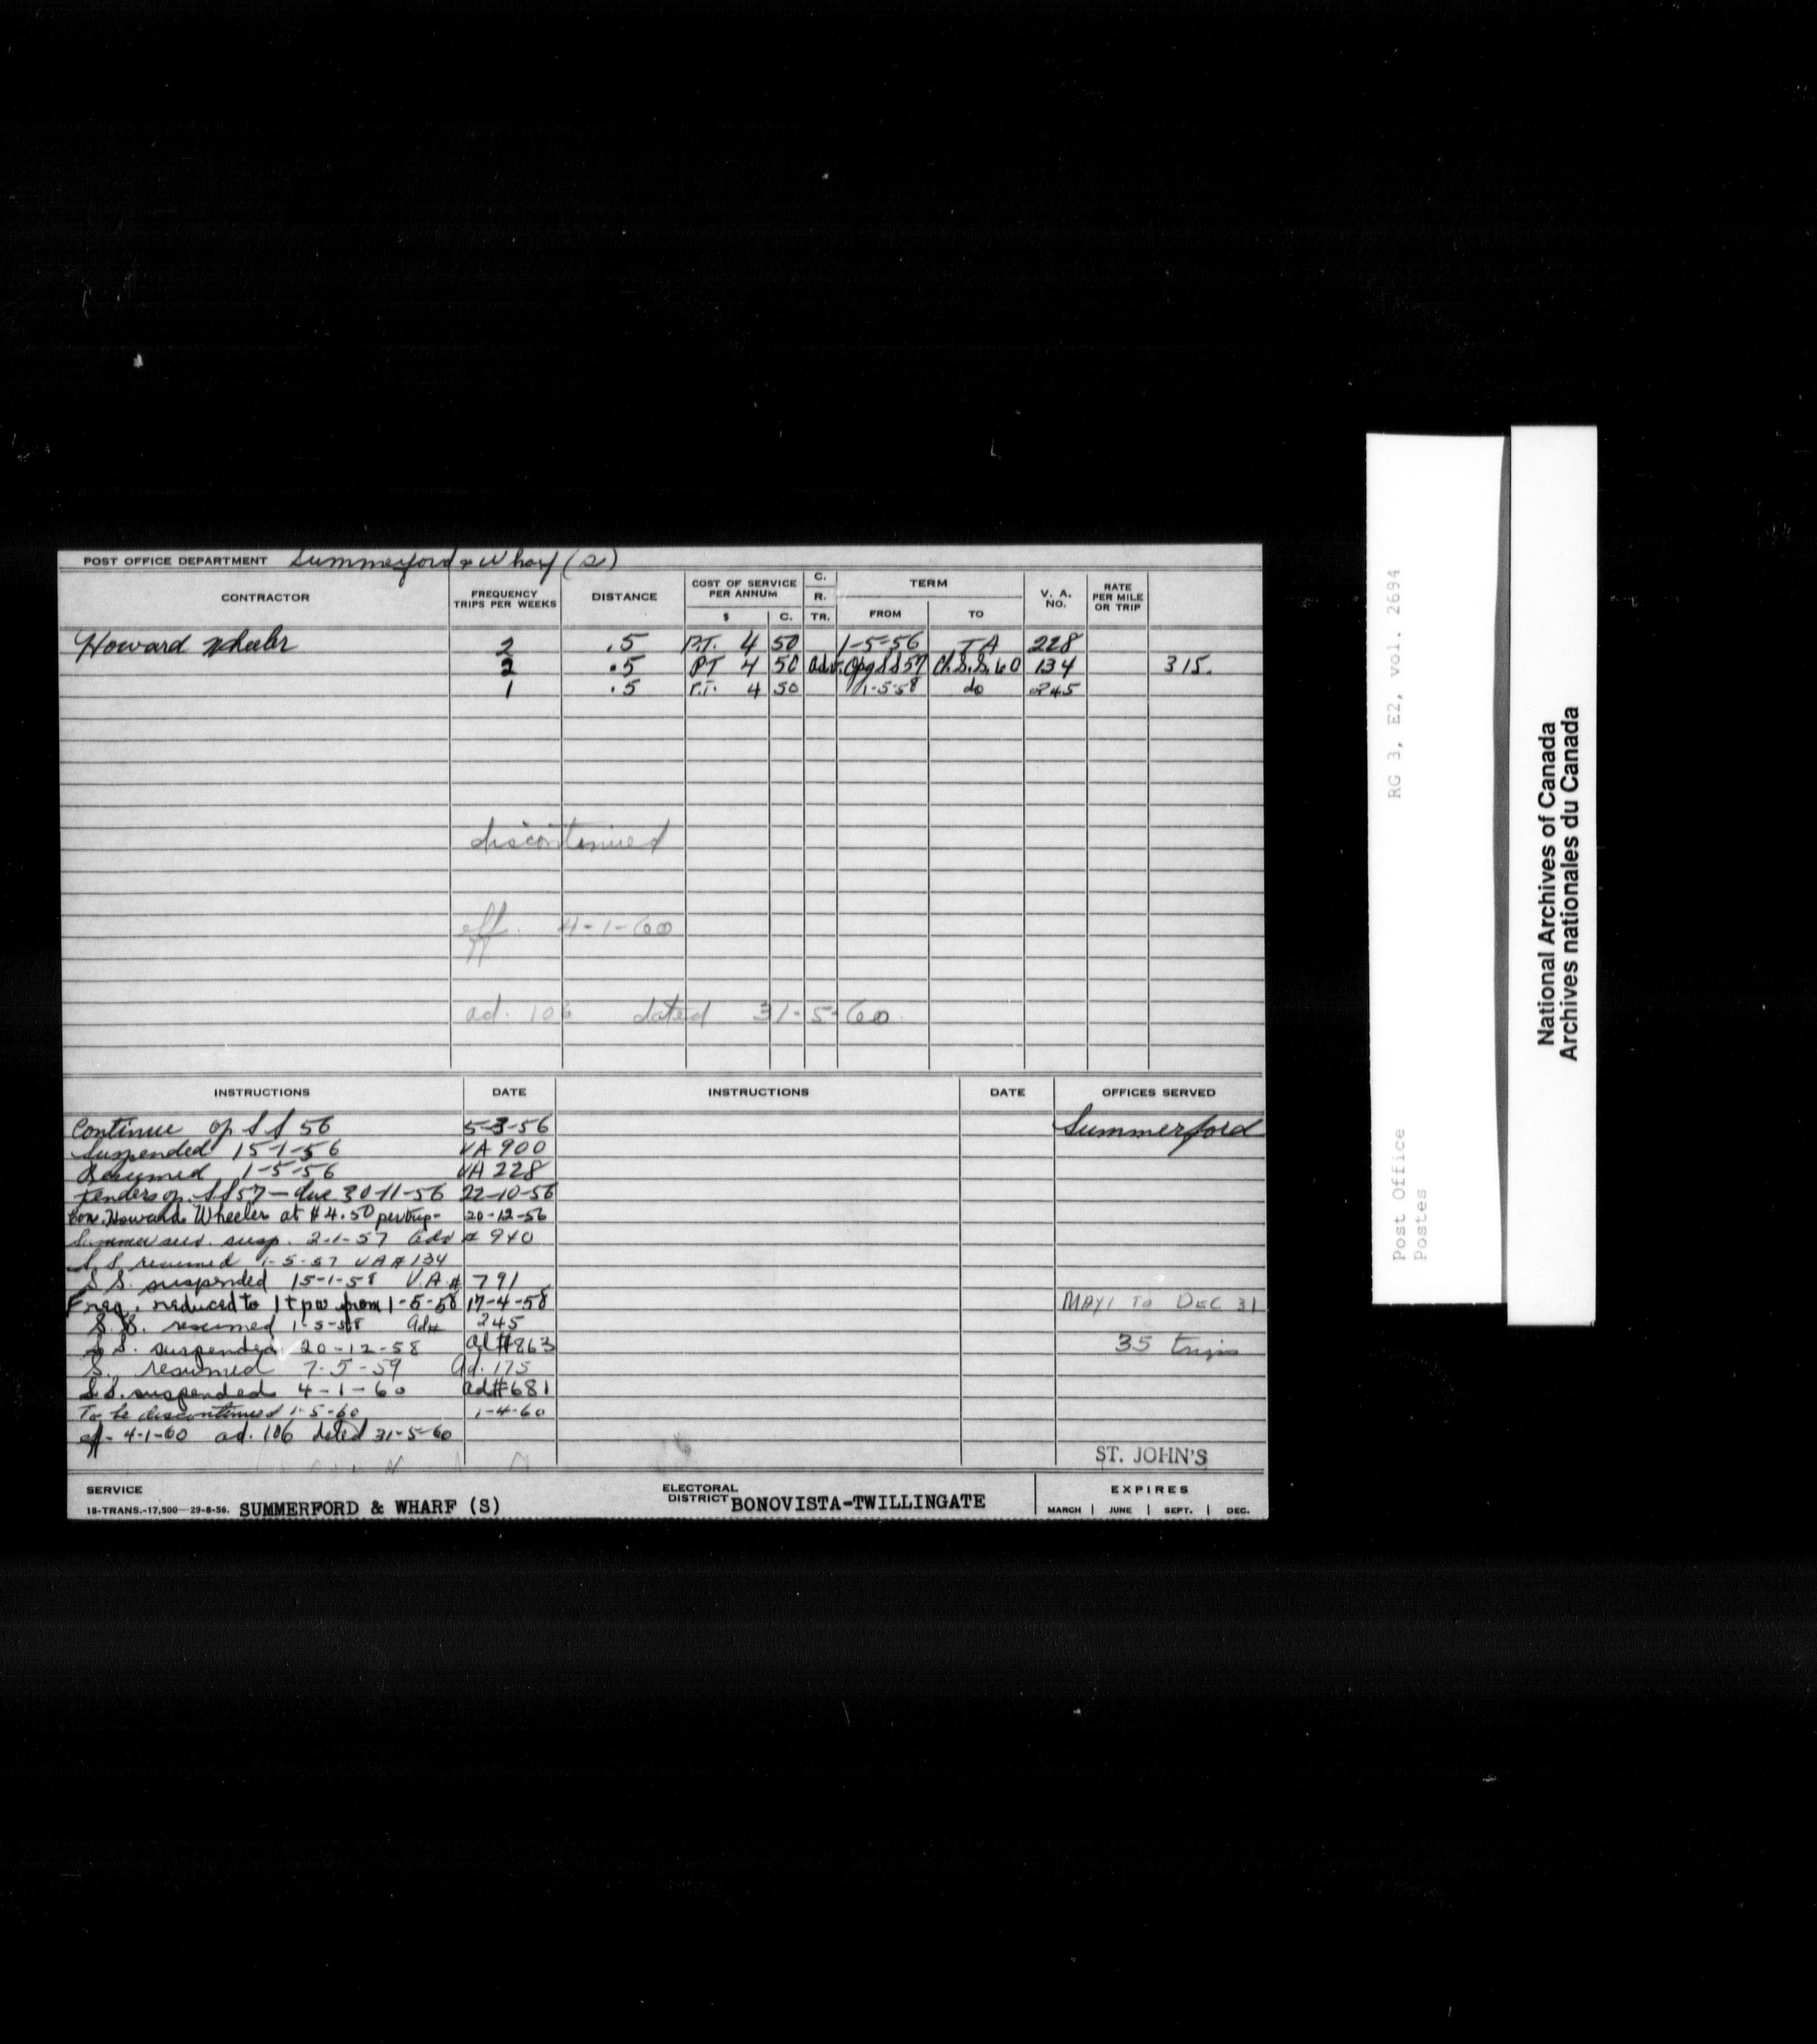 POST OFFICE DEPARTMENT Summerford & Wharf (S)
CONTRACTOR FREQUENCY TRIPS PER WEEKS DISTANCE COST OF SERVICE PER ANNUM $ C. C. R. TR. TERM FROM TO V. A. NO. RATE PER MILE OR TRIP
Howard Wheeler 2 .5 P.T. 4 50 1-5-56 TA 228
2 .5 PT 4 50 adv. Opg S S 57 Cl. S.S. 60 134 315.
1 .5 P.T. 4 50 1-5-58 do 245
discontinued
eff. 4-1-60
ad. 106 dated 31-5-60
INSTRUCTIONS DATE INSTRUCTIONS DATE OFFICES SERVED
Continue op. S S 56 5-3-56 Summerford
Suspended 15-1-56 VA 900
Resumed 1-5-56 VA 228
Tenders op. S S 57 — due 30-11-56 22-10-56
Con. Howard Wheeler at $4.50 per trip- 20-12-56
Summer serv. susp. 2-1-57 adv # 940
S S resumed 1-5-57 VA # 134
S S. suspended 15-1-58 V.A. # 791
Freq. reduced to 1 t p w from 1-5-58 17-4-58 MAY 1 TO DEC 31
S.S. resumed 1-5-58 ad# 245
S S. suspended 20-12-58 ad #863 35 trips
S. resumed 7-5-59 ad. 175
S S. suspended 4-1-60 ad#681
To be discontinued 1-5-60 1-4-60
eff- 4-1-60 ad. 106 dated 31-5-60
ST. JOHN'S
SERVICE
18-TRANS.-17,500—29-8-56. SUMMERFORD & WHARF (S) ELECTORAL DISTRICT BONOVISTA-TWILLINGATE EXPIRES MARCH | JUNE | SEPT. | DEC.
RG 3, E2, vol. 2694
Post Office
Postes
National Archives of Canada
Archives nationales du Canada